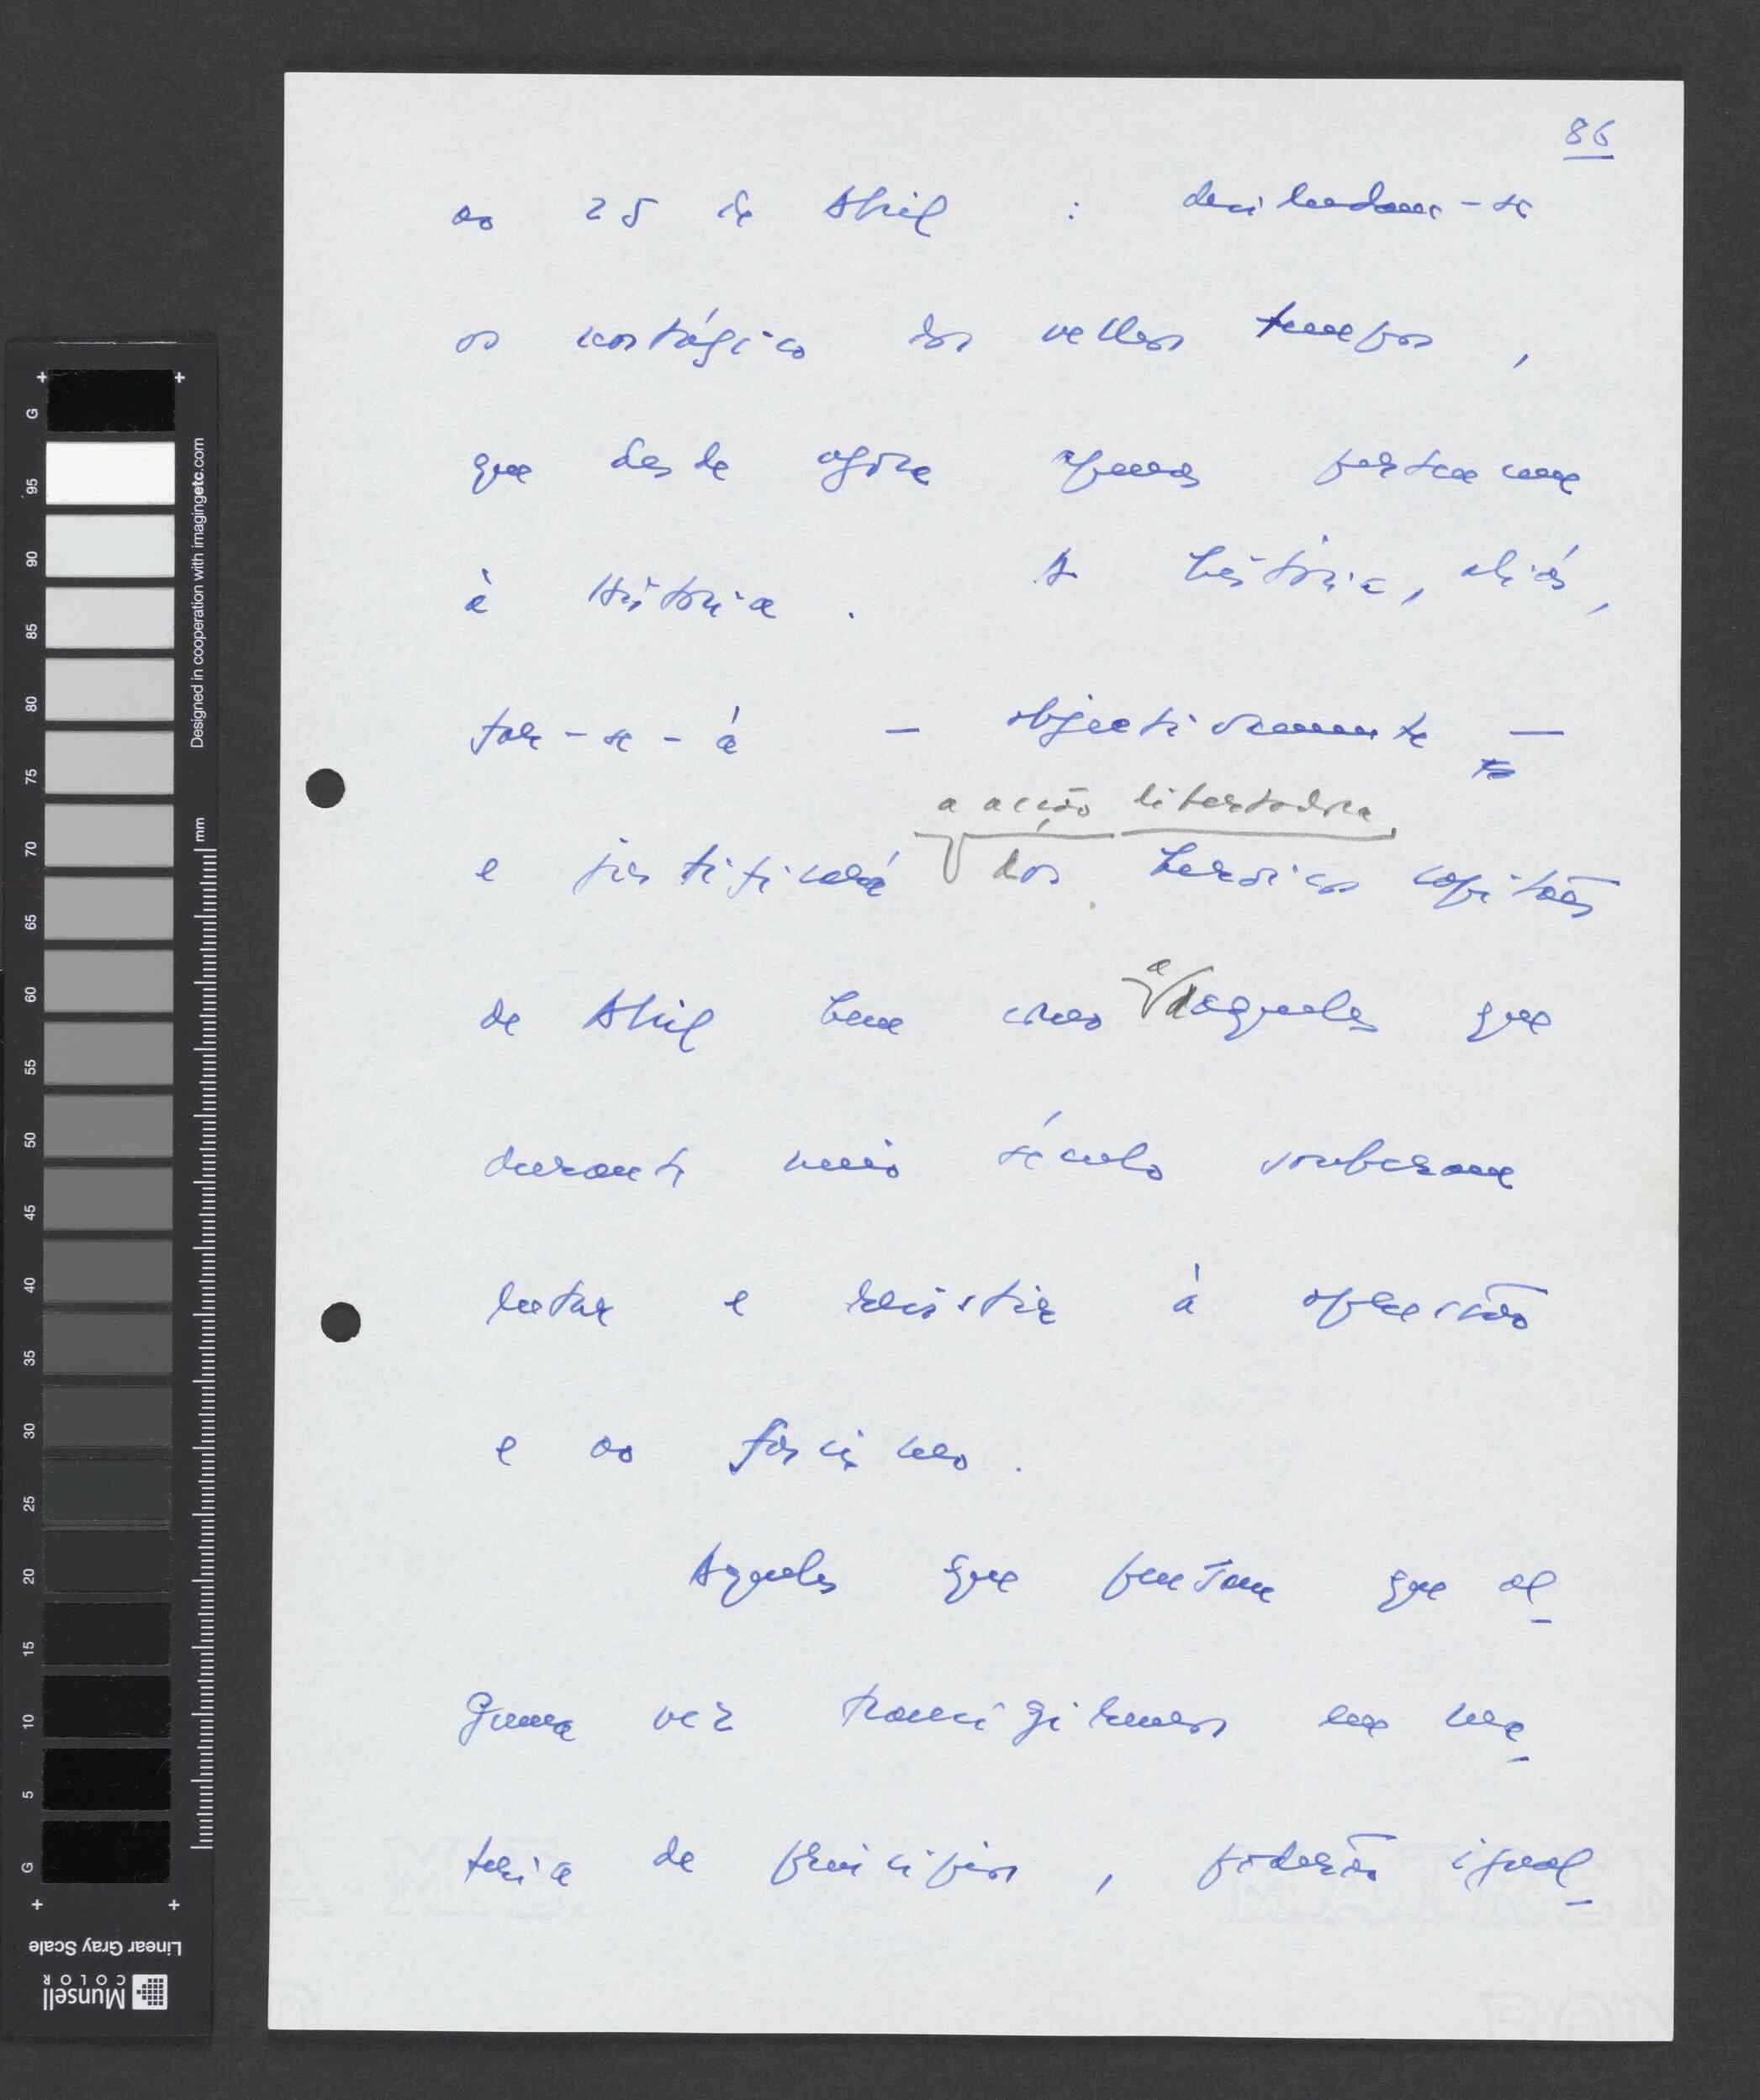 86
ao 25 de Abril : desiludam-se
os nostálgicos dos velhos tempos ,
que desde agora apenas pertencem
à História . A história, aliás,
far-se-á – objectivamente –
a acção libertadora
e justificará dos heroicos capitães
de Abril bem como a daqueles que
durante meio século souberam
lutar e resistir à opressão
e ao fascismo .
Aqueles que pensam que al-
guma vez transigiremos em ma-
téria de princípios , poderão igual-
Designed in cooperation with imagingetc.com
mm
G 95 90 85 80 75 70 65 60 55 50 45 40 35 30 25 20 15 10 5 G
Linear Gray Scale
Munsell
COLOR